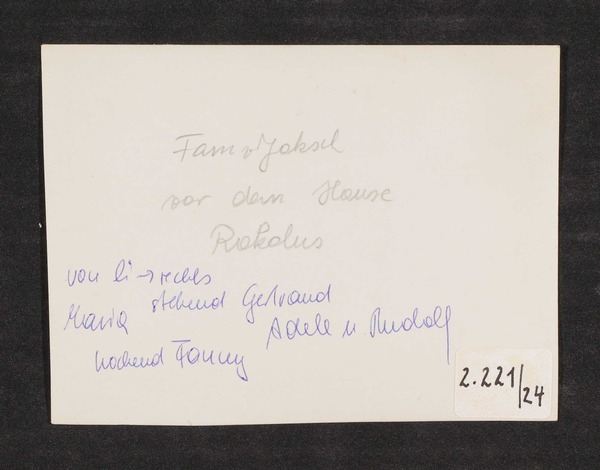 Fam v Joksch
vor dem Hause
Rokolus
von li → rechts
Maria stehend Gertraud
Adele u Rudolf
hockend Fanny
2.221/24